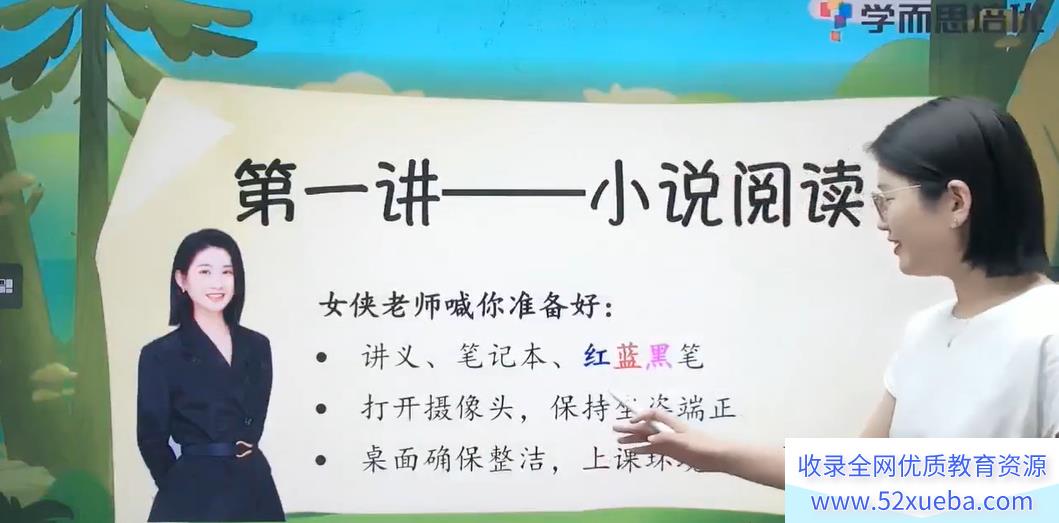 学而思培优
第一讲——小说阅读
女侠老师喊你准备好：
• 讲义、笔记本、红蓝黑笔
• 打开摄像头，保持坐姿端正
• 桌面确保整洁，上课环境
收录全网优质教育资源
www.52xueba.com